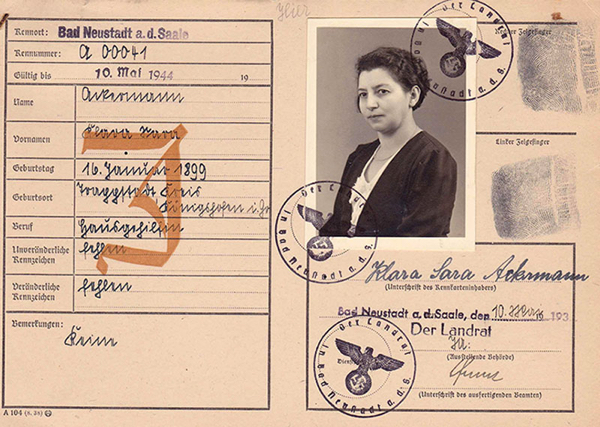 Kennort: Bad Neustadt a.d. Saale
Kennummer: A 00041
Gültig bis 10. Mai 1944 19
Name Ackermann
Vornamen Klara Sara
Geburtstag 16. Januar 1899
Geburtsort
Königshofen i. Gr
Beruf Hausgehilfin
Unveränderliche Kennzeichen fehlen
Veränderliche Kennzeichen fehlen
Bemerkungen: Keine
J
A 104
Rechter Zeigefinger
Linker Zeigefinger
Der Landrat
in Bad Neustadt a. d. S.
Der Landrat
in Bad Neustadt a. d. S.
Klara Sara Ackermann
(Unterschrift des Kennkarteninhabers)
Bad Neustadt a.d. Saale, den 10. 193
Der Landrat
(Ausstellende Behörde)
(Unterschrift des ausfertigenden Beamten)
Der Landrat
in Bad Neustadt a. d. S.